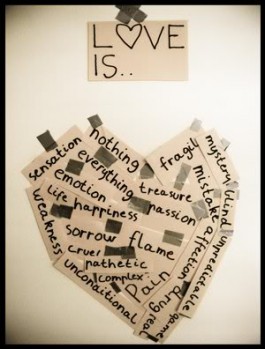 L♡VE
IS..
nothing
sensation
everything
emotion
life
happiness
weakness
treasure
passion
sorrow
flame
cruel
pathetic
complex
unconditional
pain
drug
real
game
fragile
mystery
mistake
blind
affection
unpredictable